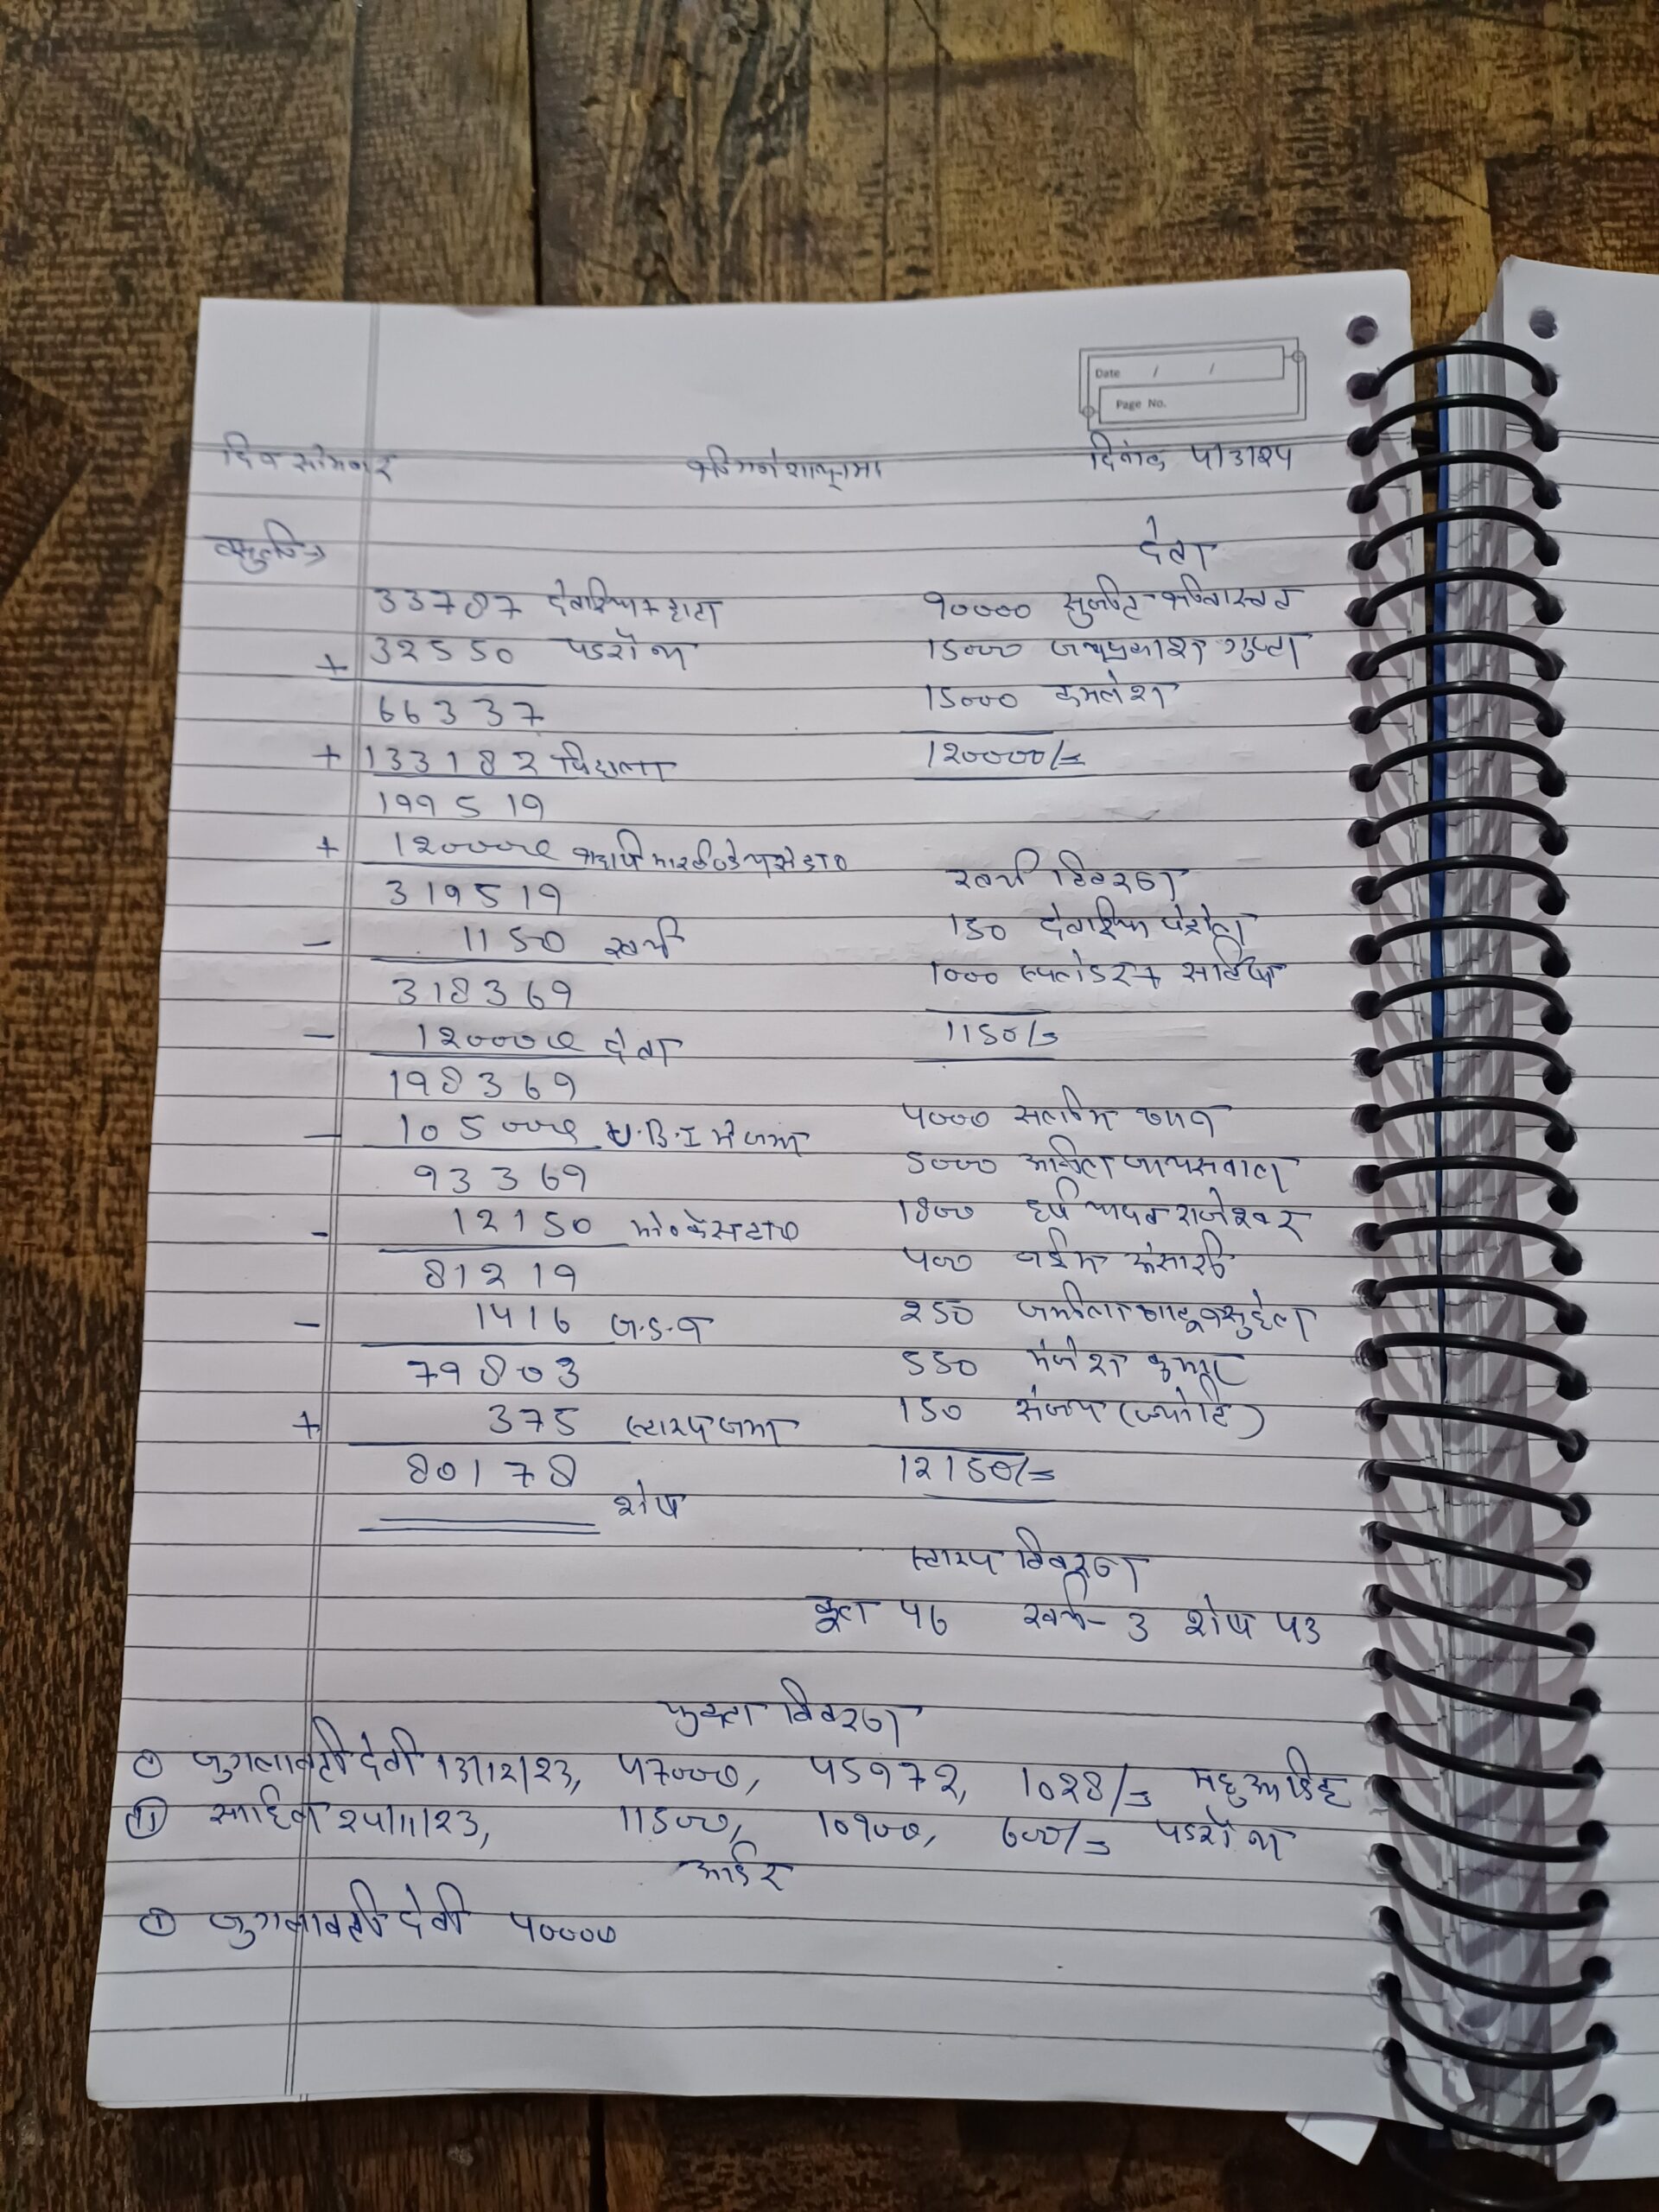 Date / /
Page No.
दिन सोमवार श्री गणेशाय नमः दिनांक 4/3/24
वसुली→ देना
33787 देवरिया + हाटा 90000 सुजीत श्रीवास्तव
+ 32550 पडरौना 15000 जयप्रकाश गुप्ता
66337 15000 कमलेश
+ 133182 पिछला 120000/=
199519
+ 120000
319519 खर्च विवरण
- 1150 खर्च 150 देवरिया पेट्रोल
318369 1000 स्पलेंडर + सर्विस
- 120000 देना 1150/=
198369
- 105000 U.B.I मे जमा 4000 सलीम
93369 5000 अनिल जायसवाल
- 12150 1800 यादव राजेश्वर
81219 400 अंसारी
- 1416 ज.ड.न 250
79803 550 कुमार
+ 375 स्टाम्प जमा 150 संजय (ज्योति)
80178 12150/=
शेष
स्टाम्प विवरण
कुल 46 खर्च - 3 शेष 43
चुकता विवरण
① जुगलावती देवी 13/12/23, 47000, 45972, 1028/= महुआडिह
② साहिल 24/11/23, 11500, 10900, 600/= पडरौना
आर्डर
① जुगलावती देवी 40000